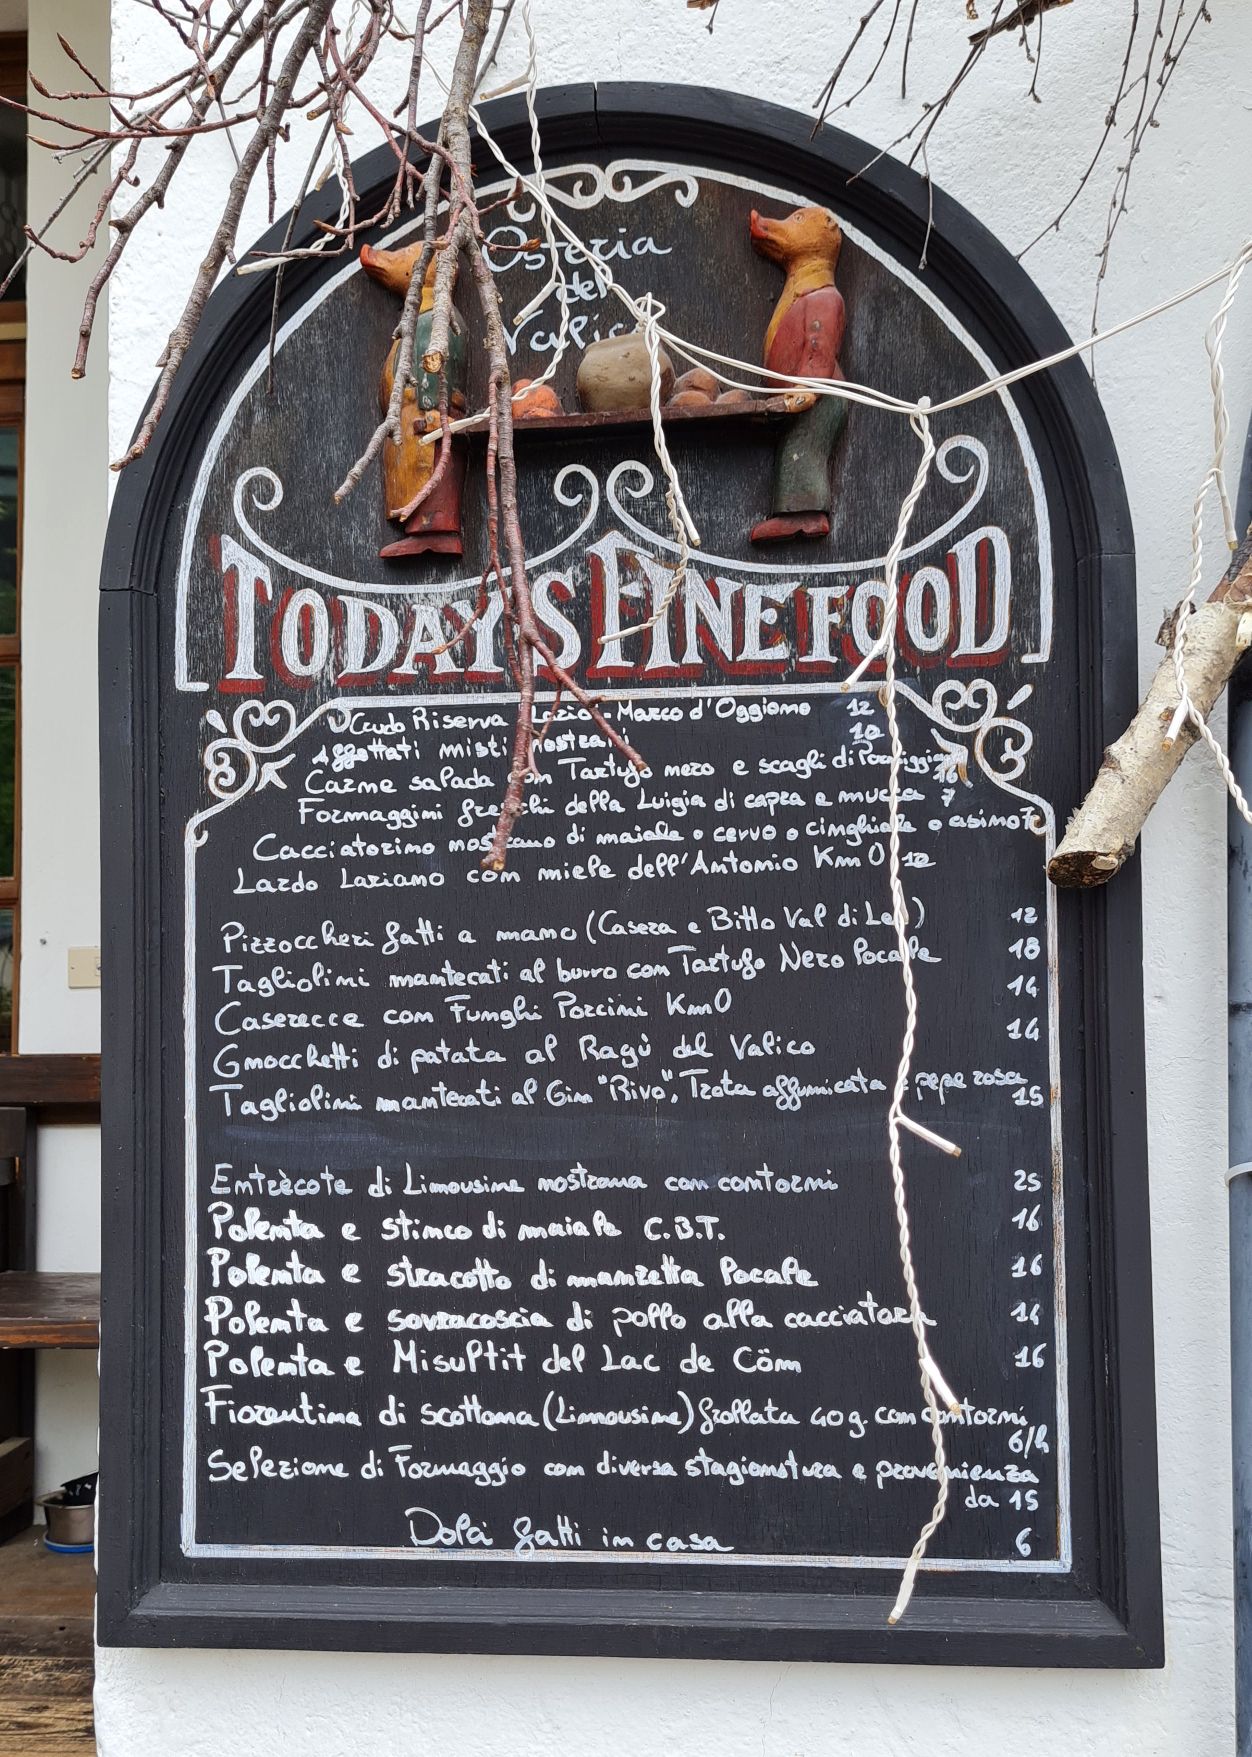 Osteria
del
Valico
TODAY'S FINE FOOD
Crudo Riserva Lazio - Marco d'Oggiono 12
Affettati misti nostrani 10
Carne salada con Tartufo nero e scagli di Parmiggiano 16
Formaggini freschi della Luigia di capra e mucca 7
Cacciatorino nostrano di maiale o cervo o cinghiale o asino 7
Lardo Lariano con miele dell'Antonio Km0 12
Pizzoccheri fatti a mano (Casera e Bitto Val di Lei) 12
Tagliolini mantecati al burro con Tartufo Nero locale 18
Caserecce con Funghi Porcini Km0 14
Gnocchetti di patata al Ragù del Valico 14
Tagliolini mantecati al Gin "Rivo", Trota affumicata e pepe rosa
15
Entrècote di Limousine nostrana con contorni 25
Polenta e stinco di maiale C.B.T. 16
Polenta e stracotto di manzetta locale 16
Polenta e sovracoscia di pollo alla cacciatora 14
Polenta e Misultit del Lac de Cöm 16
Fiorentina di scottona (Limousine) frollata 40g. con contorni
6/h
Selezione di Formaggio con diversa stagionatura e provenienza
da 15
Dolci fatti in casa 6